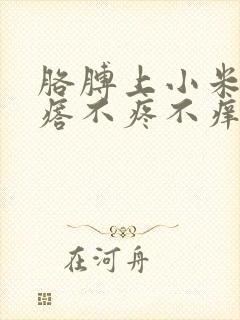 胳膊上小米
瘩不疼不痒
在河舟